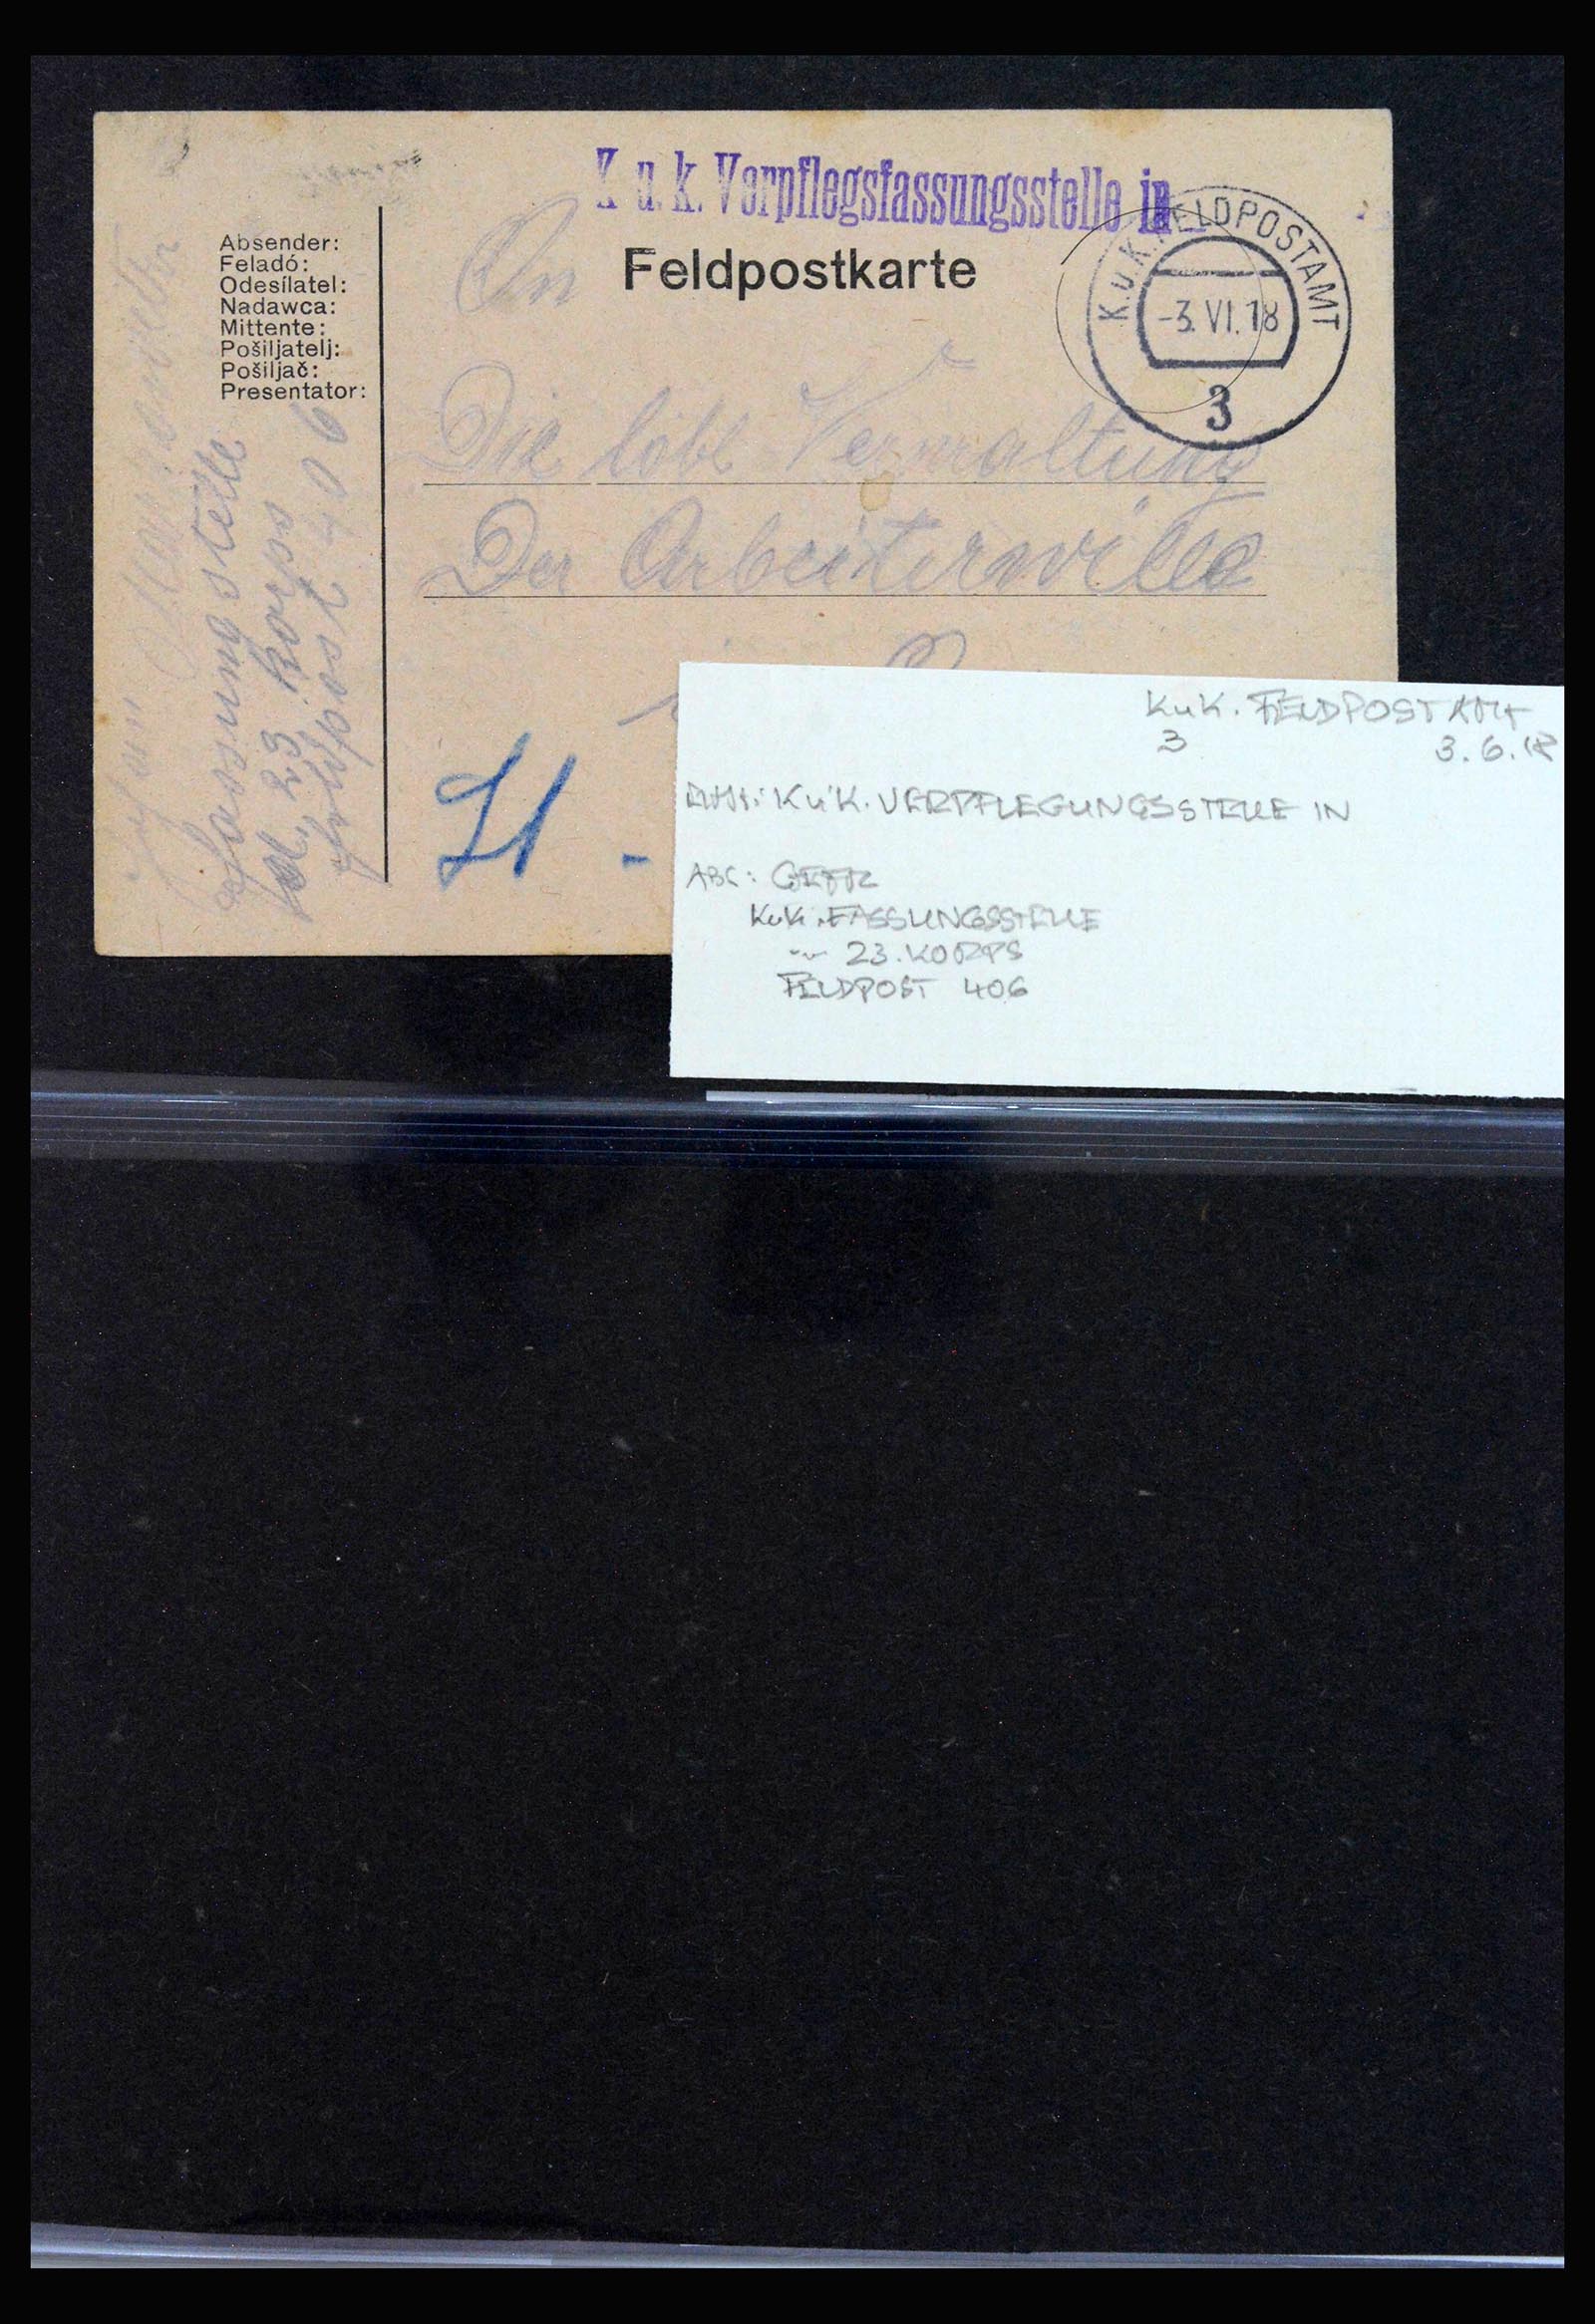 K. u. k. Verpflegsfassungsstelle in
K.u.K. FELDPOSTAMT
-3. VI. 18
3
Feldpostkarte
Absender:
Feladó:
Odesílatel:
Nadawca:
Mittente:
Pošiljatelj:
Pošiljač:
Presentator:
An
Die löbl Verwaltung
Der Arbeiterwille
Fassungstelle
23 Korps
Feldpost 406
KuK. FELDPOSTAMT
3 3.6.18
KuK. VERPFLEGUNGSSTELLE IN
ABS:
KuK. FASSUNGSSTELLE
23. KORPS
FELDPOST 406